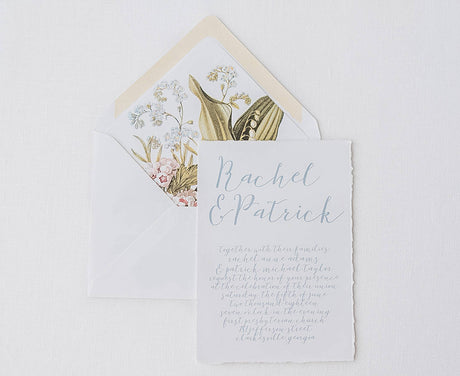 Rachel
& Patrick
together with their families
rachel anne adams
& patrick michael taylor
request the honor of your presence
at the celebration of their union
saturday, the fifth of june
two thousand eighteen
seven o'clock in the evening
first presbyterian church
jefferson street
clarkesville, georgia